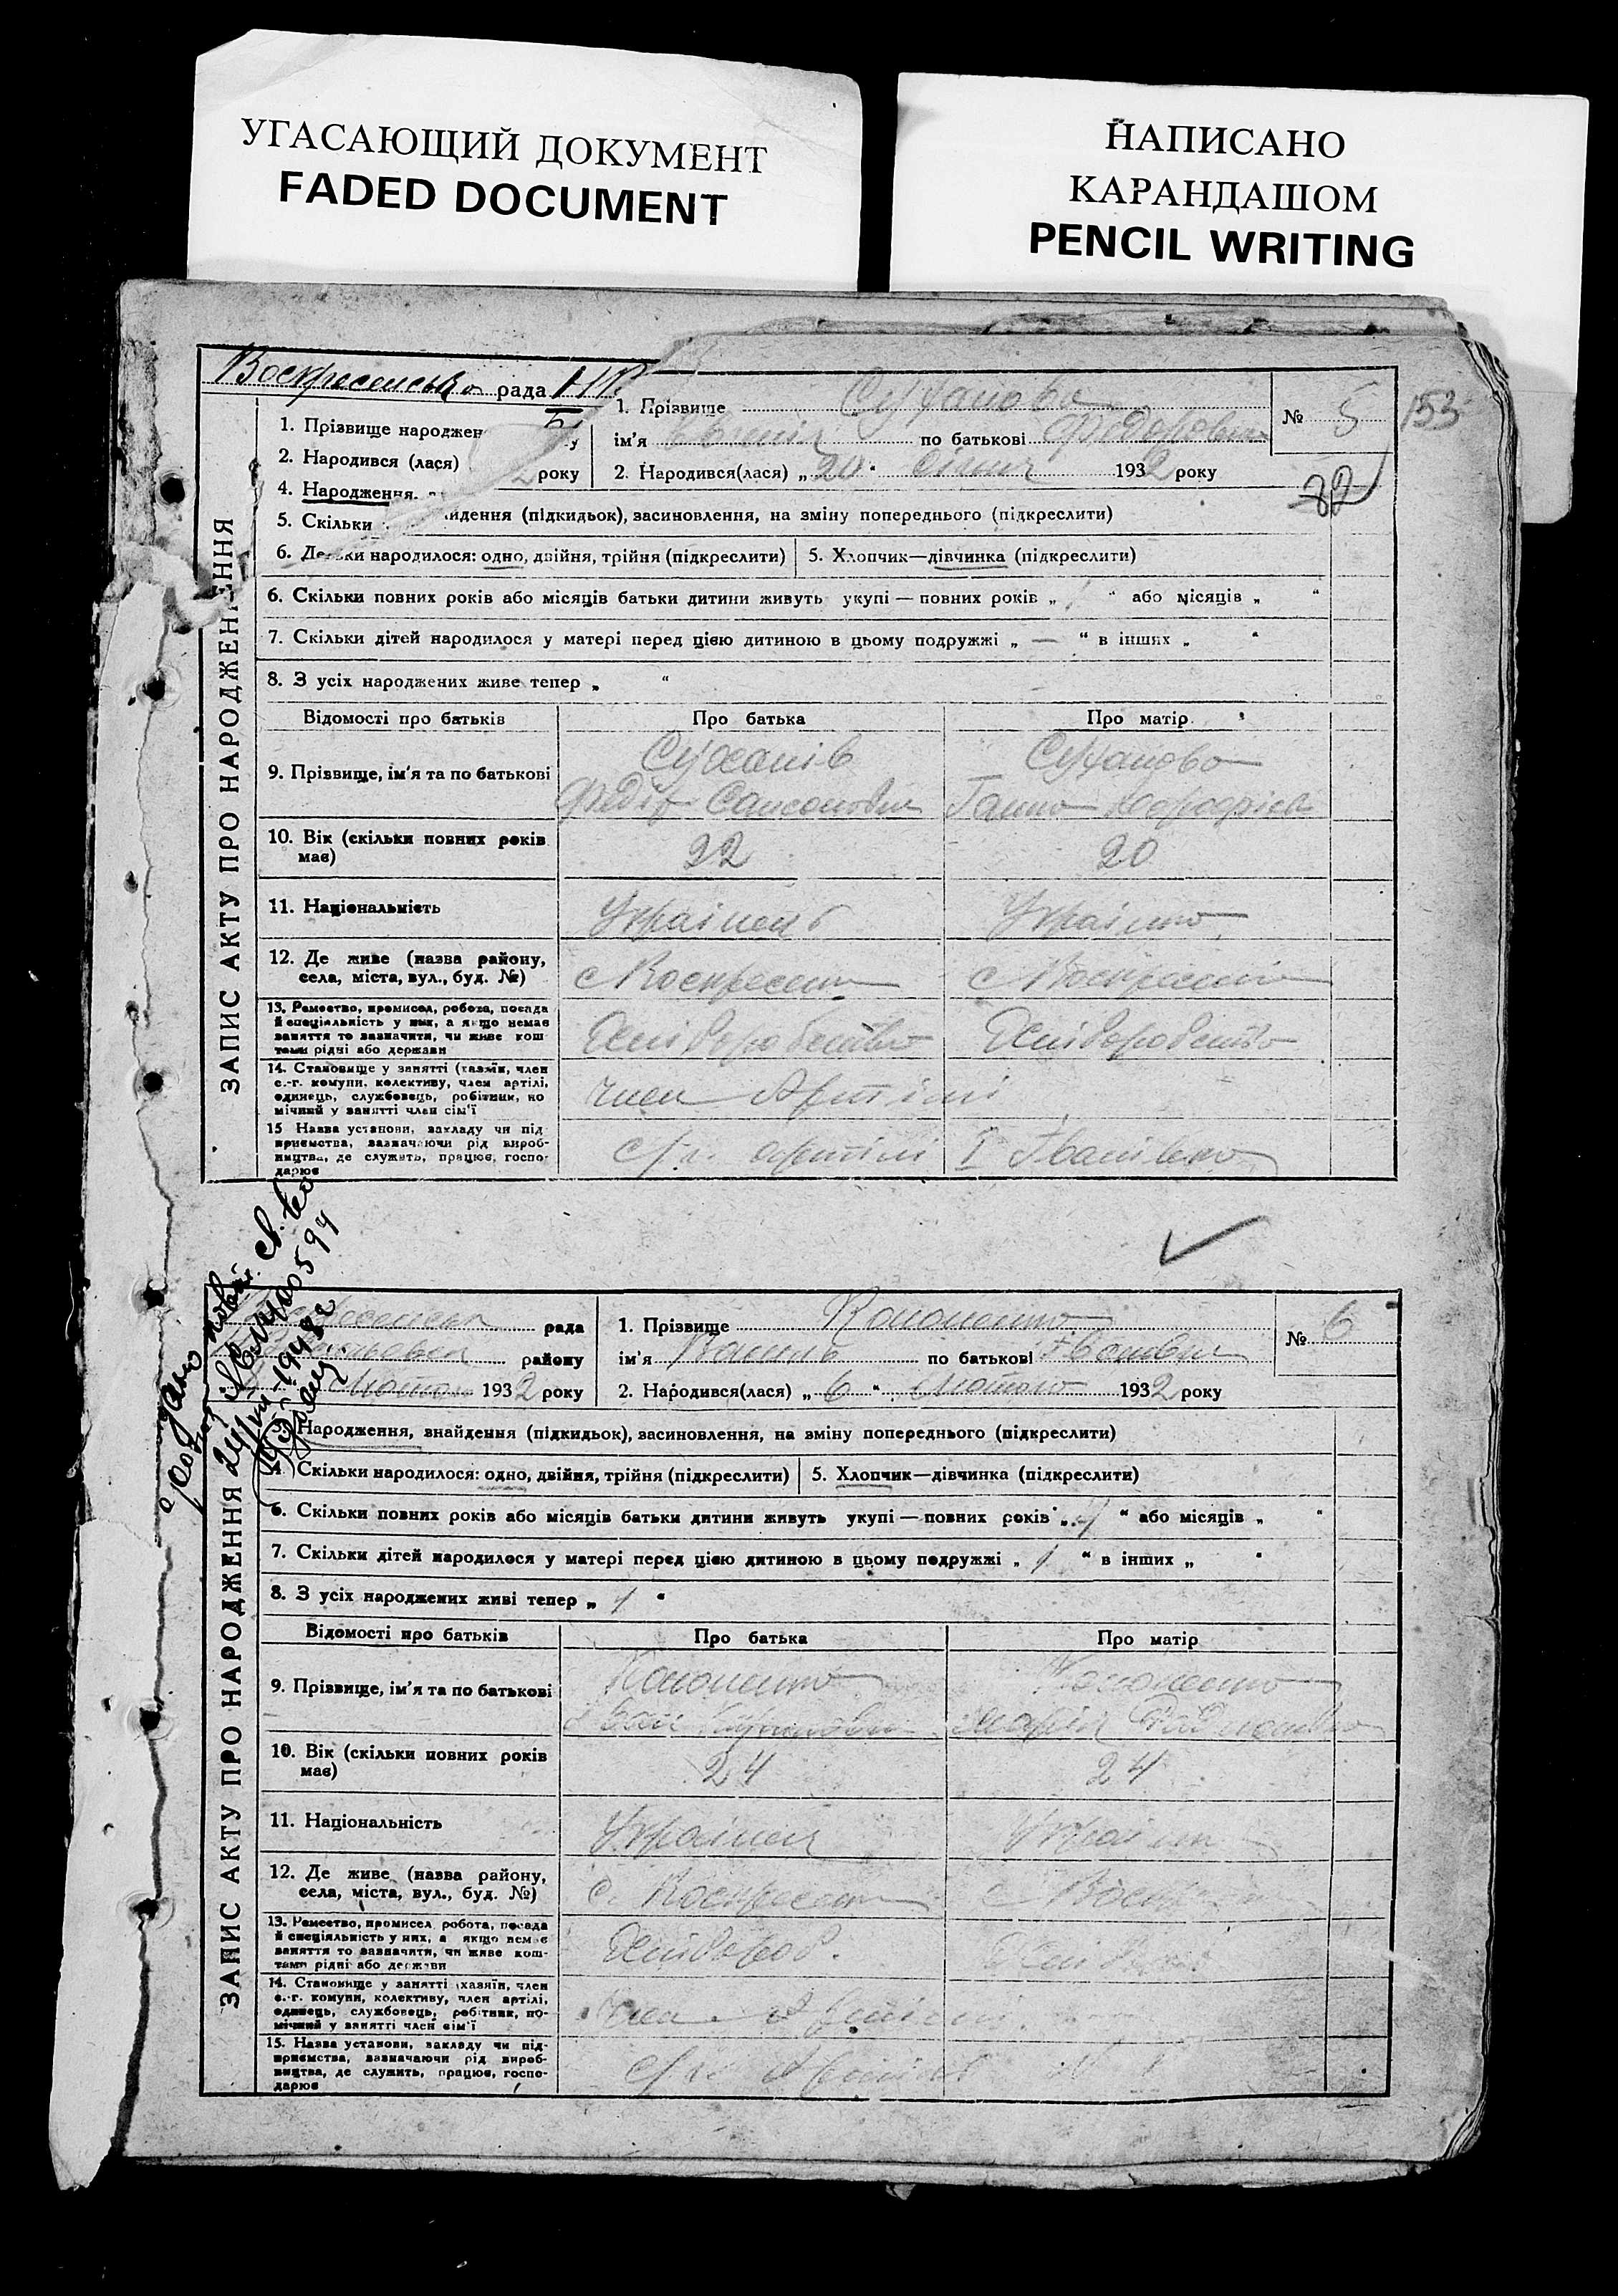 УГАСАЮЩИЙ ДОКУМЕНТ
FADED DOCUMENT
НАПИСАНО
КАРАНДАШОМ
PENCIL WRITING
153
82
ЗАПИС АКТУ ПРО НАРОДЖЕННЯ
рада
1. Прізвище народжен
2. Народився (лася)
року
4. Народження
5. Скільки
1. Прізвище Суханова
ім'я по батькові Федоровна
2. Народився(лася) „20" січня 1932 року
№ 5
йдення (підкидьок), засиновлення, на зміну попереднього (підкреслити)
6. народилося: одно, двійня, трійня (підкреслити) 5. Хлопчик—дівчинка (підкреслити)
6. Скільки повних років або місяців батьки дитини живуть укупі — повних років „ 1 " або місяців „ "
7. Скільки дітей народилося у матері перед цією дитиною в цьому подружжі „ — " в інших „ "
8. З усіх народжених живе тепер „ "
Відомості про батьків Про батька Про матір
9. Прізвище, ім'я та по батькові
Суханів Суханова
Федір Самсонович Ганна
10. Вік (скільки повних років має) 22 20
11. Національність Українець Українка
12. Де живе (назва району, села, міста, вул., буд. №) с Воскресенка с Воскресенка
13. Ремество, промисел, робота, посада
й спеціяльність у них, а якщо немає
заняття то зазначити, чи живе кош
тами рідні або держави
Хліборобство Хліборобство
14. Становище у занятті (хазяїн, член
с.-г. комуни, колективу, член артілі,
одинець, службовець, робітник, по
мічний у занятті член сім'ї
член Артілі
15 Назва установи, закладу чи під
приємства, зазначаючи рід вироб-
ництва, де служить, працює, госпо-
дарює
с/г. артілі
ЗАПИС АКТУ ПРО НАРОДЖЕННЯ
рада
району
Лютого 1932 року
1. Прізвище Кононенко
ім'я по батькові Іванович
2. Народився(лася) „6" Лютого 1932 року
№ 6
Народження, знайдення (підкидьок), засиновлення, на зміну попереднього (підкреслити)
4. Скільки народилося: одно, двійня, трійня (підкреслити) 5. Хлопчик—дівчинка (підкреслити)
6. Скільки повних років або місяців батьки дитини живуть укупі — повних років „ 4 " або місяців „ "
7. Скільки дітей народилося у матері перед цією дитиною в цьому подружжі „ 1 " в інших „ "
8. З усіх народжених живі тепер „ 1 "
Відомості про батьків Про батька Про матір
9. Прізвище, ім'я та по батькові
Кононенко Кононенко
Іван Марія
10. Вік (скільки повних років має) 24 24
11. Національність Українець Українка
12. Де живе (назва району, села, міста, вул., буд. №) с. Воскресенка с
13. Ремество, промисел робота, посада
й спеціяльність у них, а якщо немає
заняття то зазначити, чи живе кош-
тами рідні або держави
Хлібороб.
14. Становище у занятті хазяїн, член
с.-г. комуни, колективу, член артілі,
одинець, службовець, робітник, по-
мічний у занятті член сім'ї
член Артілі
15. Назва установи, закладу чи під-
приємства, зазначаючи рід вироб-
ництва, де служить, працює, госпо-
дарює
с/г. Артілі